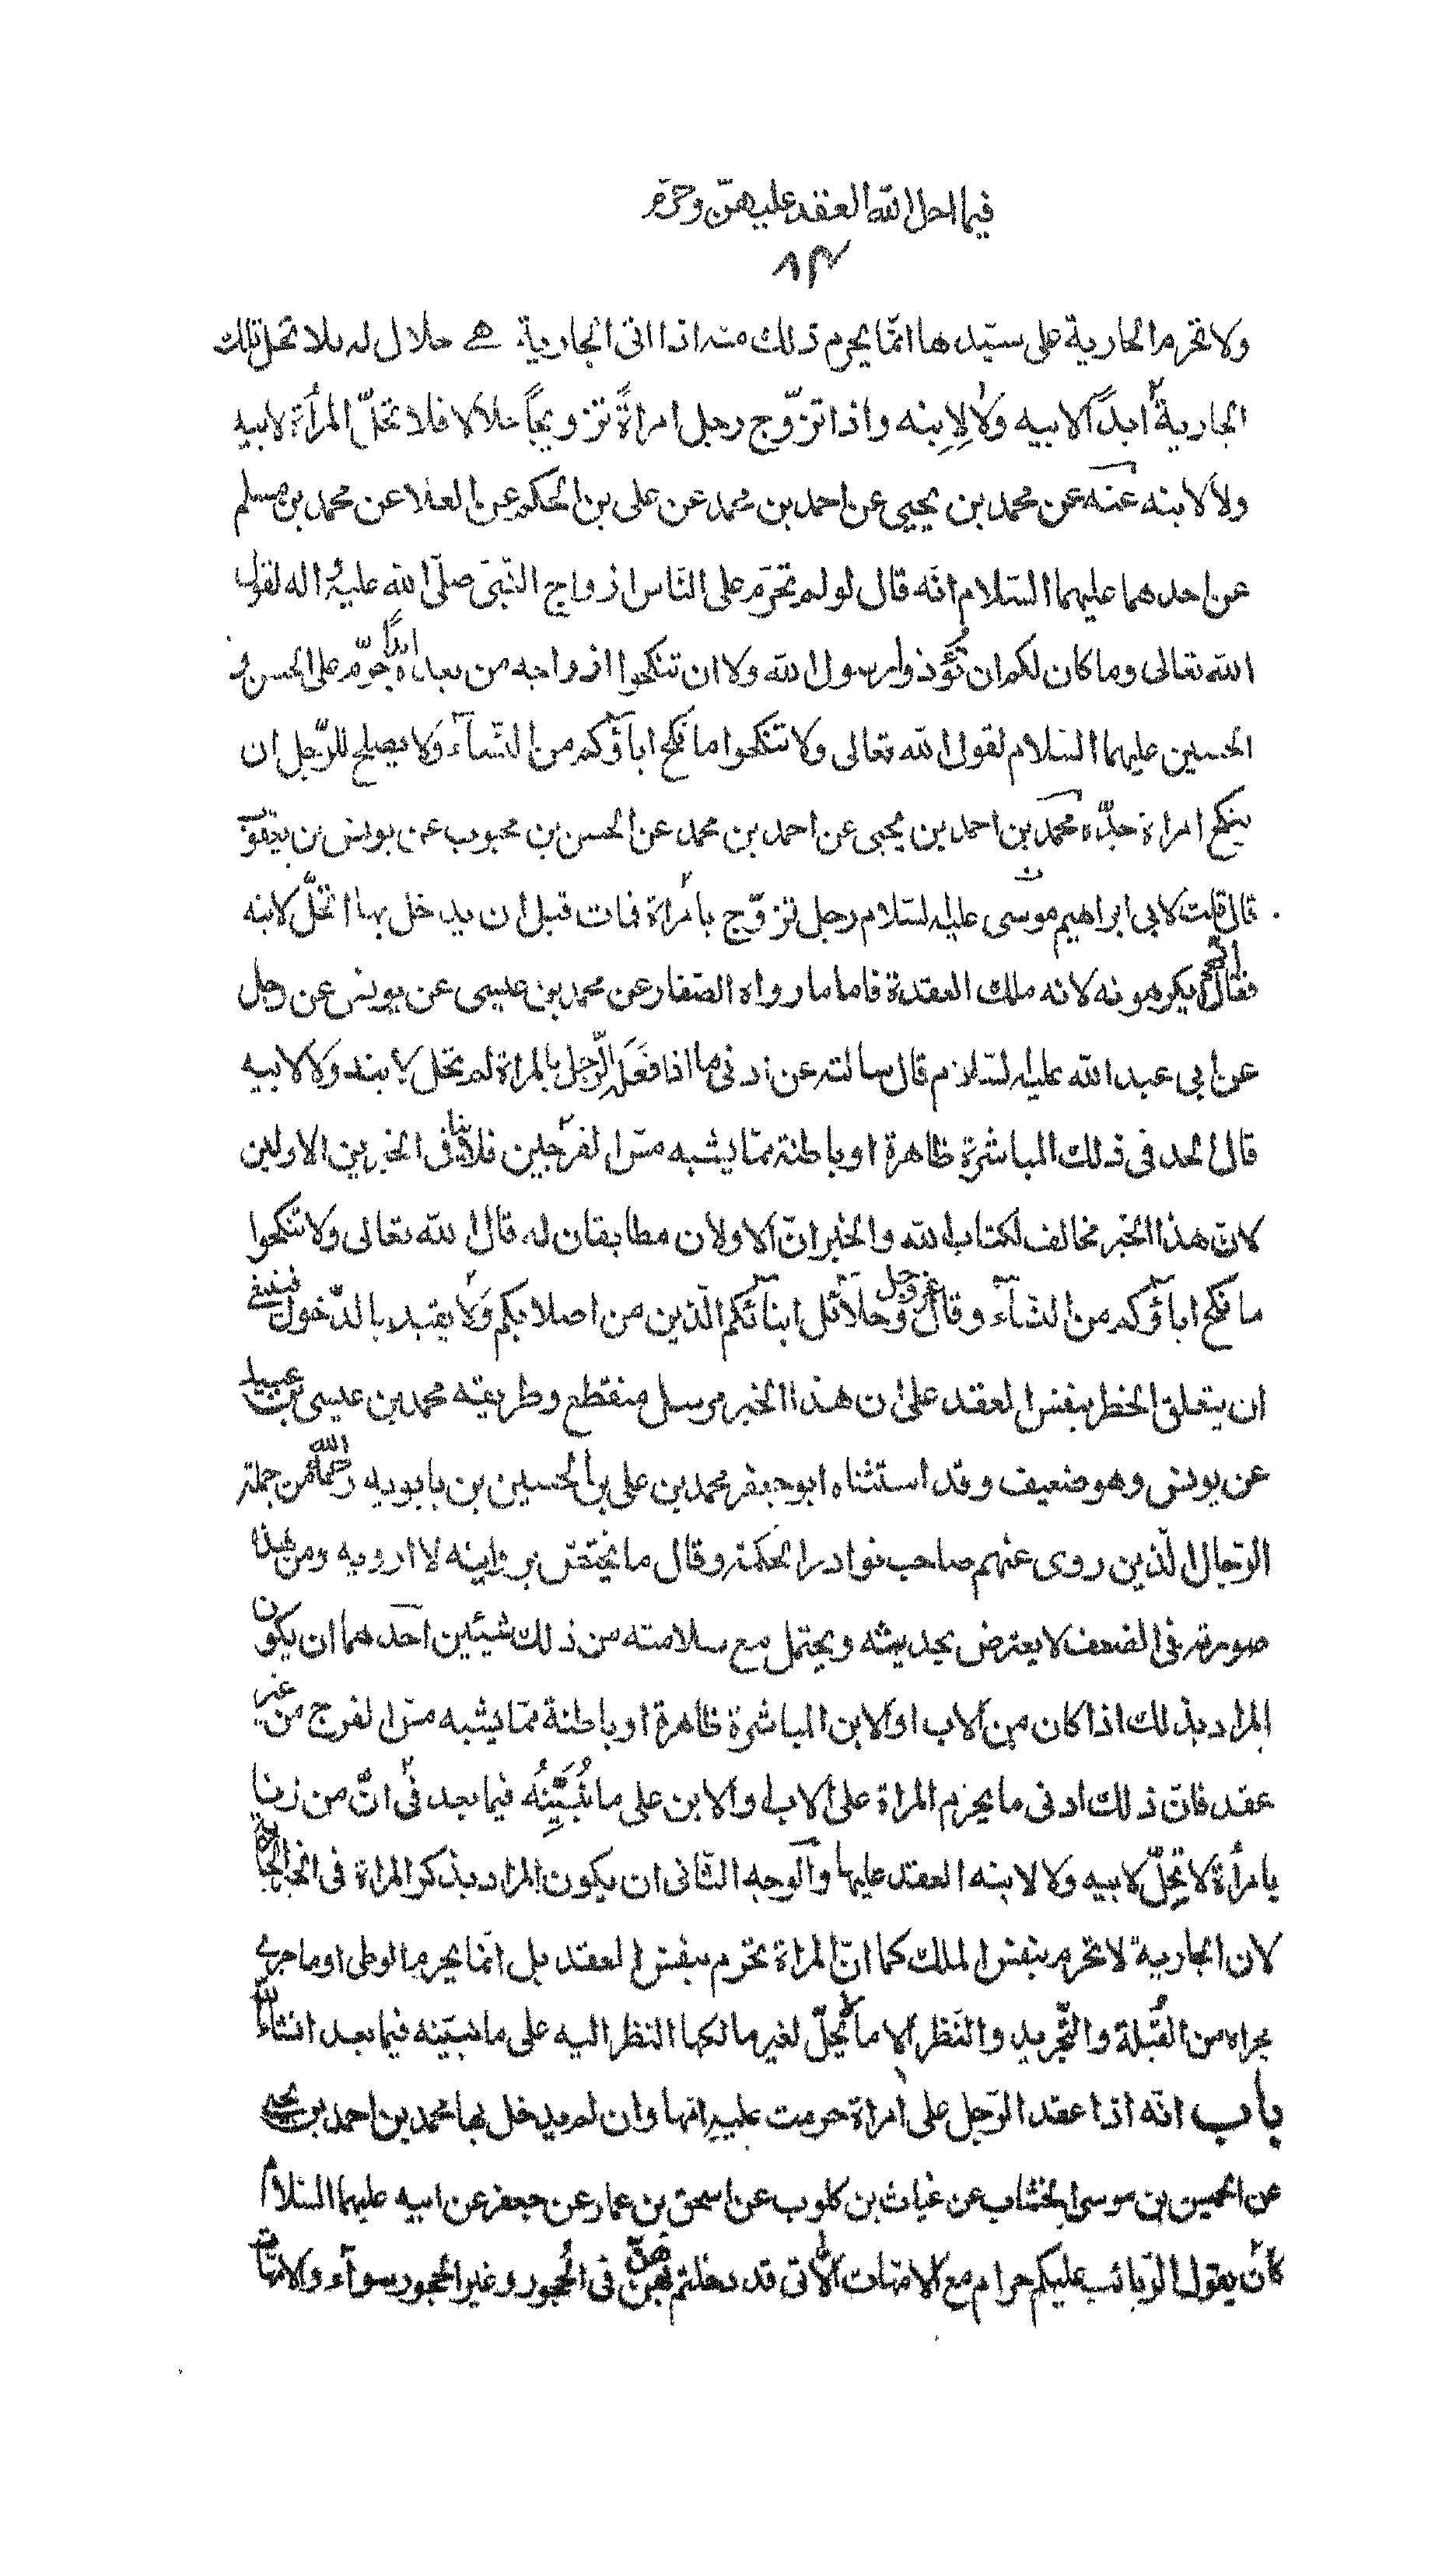 فيما احل الله العقد عليهن وحرم
٨٣
ولا تحرم الجارية على سيّدها انّما يحرم ذلك منه اذا اتى الجارية هى حلال له بلا تحل تلك
الجارية ابدًا لابيه ولا لِابنه واذا تزوّج رجل امراةً تزويجًا حلالا فلا تحلّ المرأة لابيه
ولا لابنه عنه عن محمد بن يحيى عن احمد بن محمد عن على بن الحكم عن العلا عن محمد بن مسلم
عن احدهما عليهما السّلام انّه قال لو لم تحرّم على النّاس ازواج النّبىّ صلّى الله عليه واله لقول
الله تعالى وما كان لكم ان تُؤذوا رسول الله ولا ان تنكحوا ازواجه من بعده ابدًا حرّم على الحسن و
الحسين عليهما السّلام لقول الله تعالى ولا تنكحوا ما نكح اباؤكم من النّساء ولا يصلح للرّجل ان
ينكح امراة جدّه محمد بن احمد بن يحيى عن احمد بن محمد عن الحسن بن محبوب عن يونس بن يعقوب
قال قلت لابى ابراهيم موسى عليه لسّلام رجل تزوّج بامراة فمات قبل ان يدخل بها اتحلّ لابنه
فقال انّهم يكرهونه لانه ملك العقدة فاما ما رواه الصّفار عن محمد بن عيسى عن يونس عن رجل
عن ابى عبد الله عليه لسّلام قال سالته عن ادنى ما اذا فَعَلَ الرّجل بالمراة لم تحل لابنه ولا لابيه
قال الحد فى ذلك المباشرة ظاهرة او باطنة ممّا يشبه مسّ الفرجين فلا ينافى الخبرين الاولين
لانّ هذا الخبر مخالف لكتاب الله والخبران الاولان مطابقان له قال الله تعالى ولا تنكحوا
ما نكح اباؤكم من النّساء وقال عز وجل وحلائل ابنائكم الّذين من اصلابكم ولا يقيد بالدّخول فينبغى
ان يتعلق الحظر بنفس العقد على ان هذا الخبر مرسل منقطع وطريقه محمد بن عيسى بن عبيد
عن يونس وهو ضعيف وقد استثناه ابو جعفر محمد بن على بن الحسين بن بابويه رحمه الله من جملة
الرّجال الّذين روى عنهم صاحب نوادر الحكمة وقال ما يختصّ بروايته لا ارويه ومن هذه
صورته فى الضعف لا يعترض بحديثه ويحتمل مع سلامته من ذلك شيئين احدهما ان يكون
المراد بذلك اذا كان من الاب او الابن المباشرة ظاهرة او باطنة ممّا يشبه مسّ الفرج من غير
عقد فانّ ذلك ادنى ما يحرّم المراة على الاب والابن على ما نُبَيِّنُه فيما بعد فى انّ من زنا
بامرأة لا تحِلّ لابيه ولا لابنه العقد عليها والوجه الثّانى ان يكون المراد بذكر المراة فى الخبر الجارية
لان الجارية لا تحرم بنفس الملك كما انّ المراة تحرم بنفس العقد بل انّما يحرمها الوطى او ما جرى
مجراه من القُبلة والتّجريد والنّظر الا ما لا يحلّ لغير مالكها النظر اليه على ما نبيّنه فيما بعد انشاء الله
باب انّه اذا عقد الرّجل على امراة حرمت عليه امّها وان لم يدخل بها محمد بن احمد بن يحيى
عن الحسن بن موسى الخشّاب عن غياث بن كلوب عن اسحق بن عمار عن جعفر عن ابيه عليهما السّلام انّ
كان يقول الرّبائب عليكم حرام مع الامّهات الّلاتى قد دخلتم بهن هنّ فى الحُجور وغير الحجور سواء والامّهات